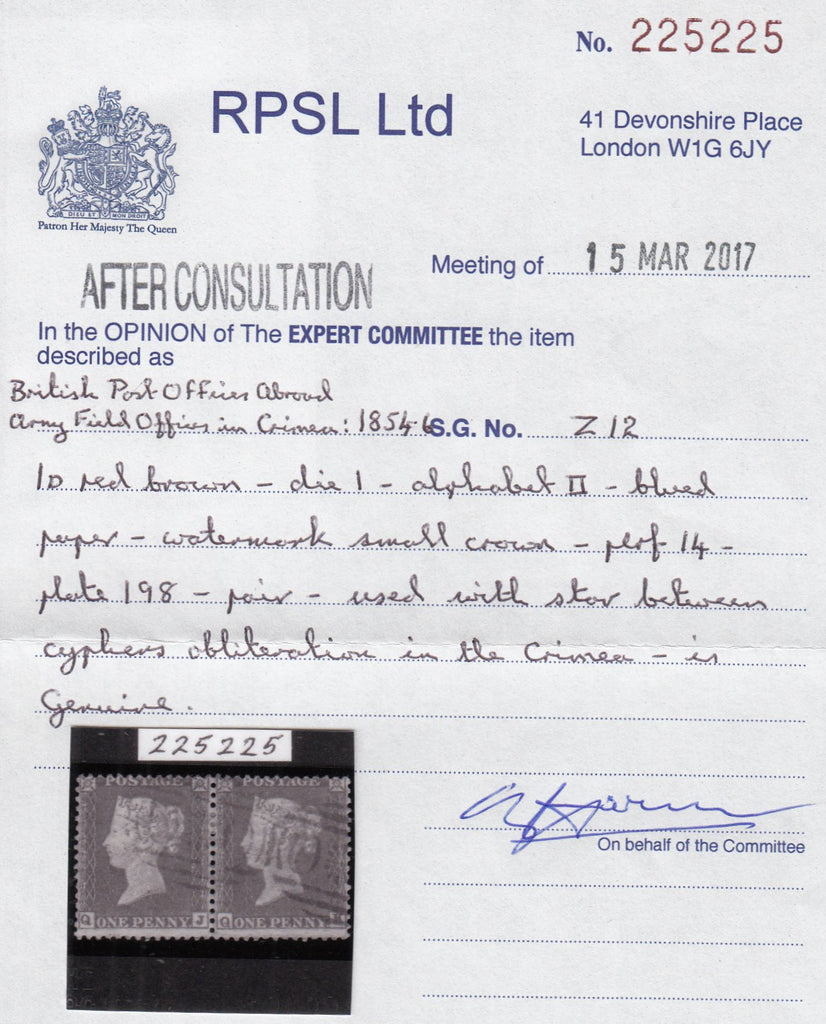 No. 225225
RPSL Ltd
41 Devonshire Place
London W1G 6JY
DIEU ET MON DROIT
Patron Her Majesty The Queen
Meeting of 15 MAR 2017
AFTER CONSULTATION
In the OPINION of The EXPERT COMMITTEE the item
described as
British Post Offices Abroad
Army Field Offices in Crimea: 1854-6 S.G. No. Z12
1D red brown - die 1 - alphabet II - blued
paper - watermark small crown - perf 14 -
plate 198 - pair - used with star between
cyphers obliteration in the Crimea - is
Genuine.
225225
POSTAGE POSTAGE
Q ONE PENNY J Q ONE PENNY
On behalf of the Committee